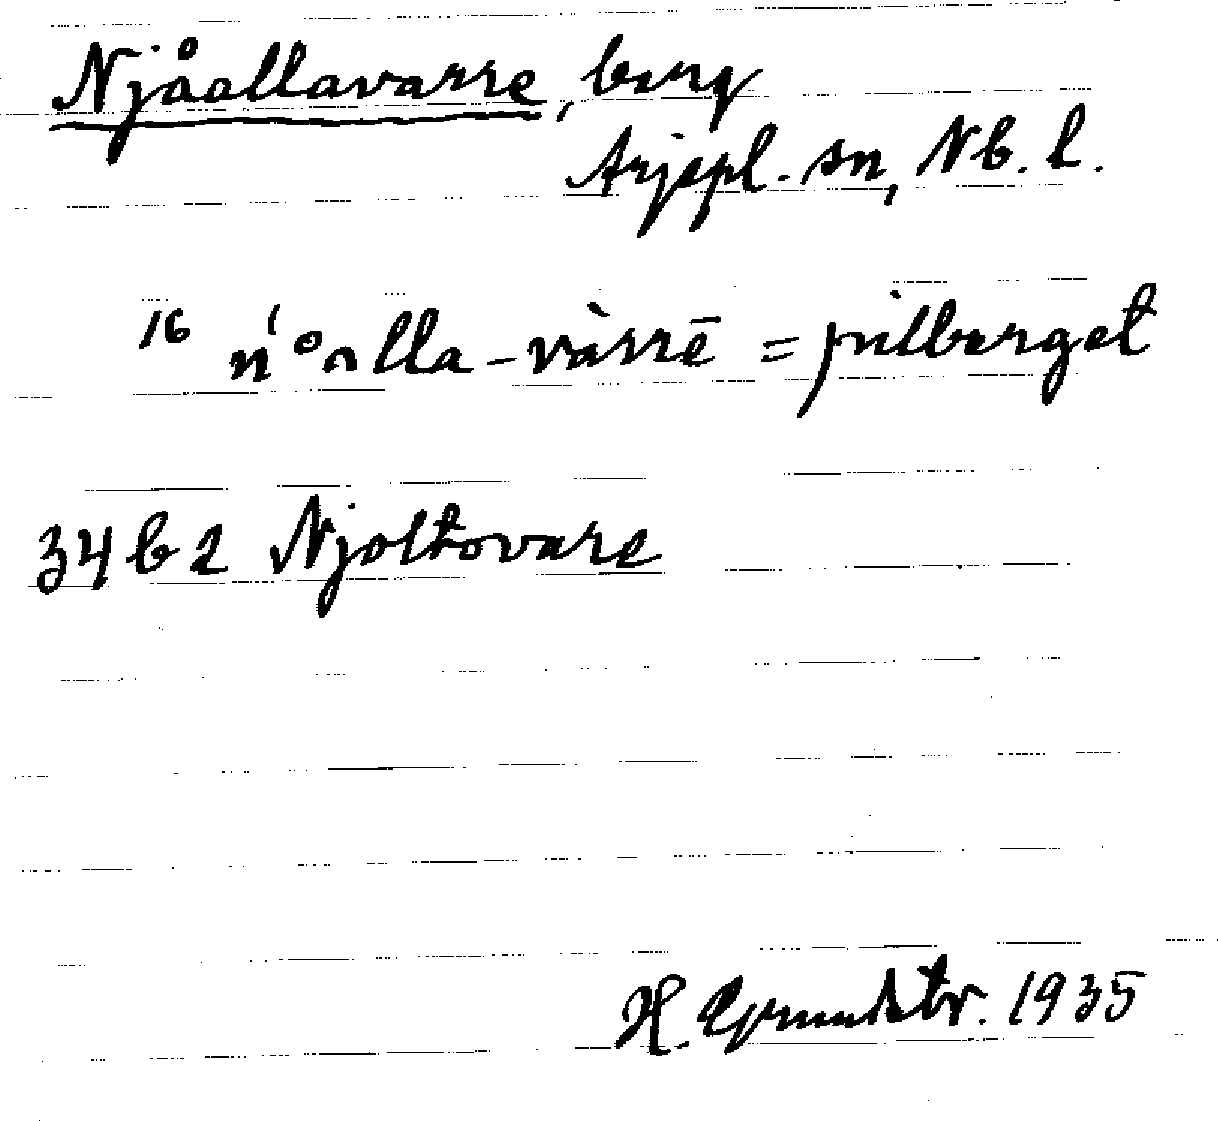 Njåallavarre, berg
Arjepl. sn, Nb. l.
16 ń°ₒlla-vàrrē = pilberget
34 b 2 Njoltovare
H. Grundstr. 1935